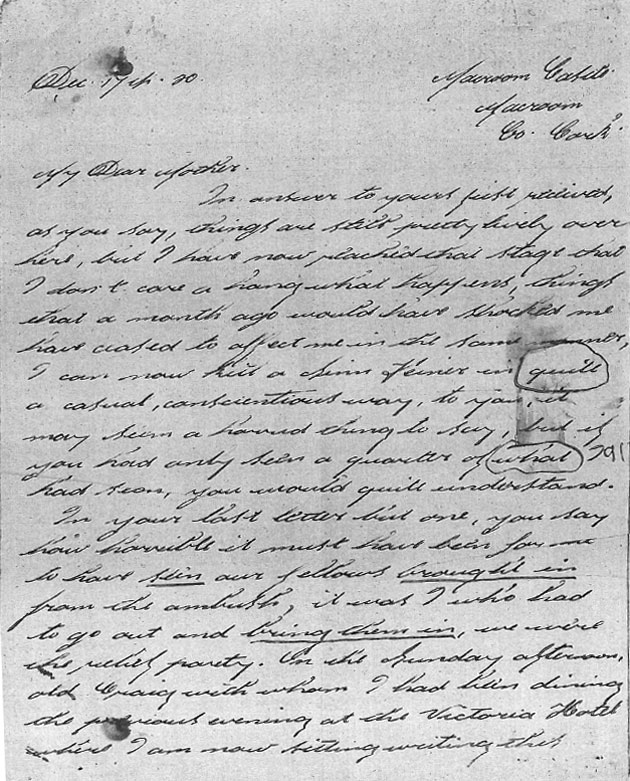 Dec. 17th. 20.
Macroom Castle
Macroom
Co. Cork.
My Dear Mother.
In answer to yours just recieved,
as you say, things are still pretty lively over
here, but I have now reached that stage that
I don't care a hang what happens, things
that a month ago would have shocked me
have ceased to affect me in the same manner,
I can now kill a Sinn Feiner in quite
a casual, conscientious way, to you, it
may seem a horrid thing to say, but if
you had only seen a quarter of what I
had seen, you would quite understand.
In your last letter but one, you say
how horrible it must have been for me
to have seen our fellows brought in
from the ambush, it was I who had
to go out and bring them in, we were
the relief party. On the Sunday afternoon,
old Craig with whom I had been dining
the previous evening at the Victoria Hotel
where I am now sitting writing this